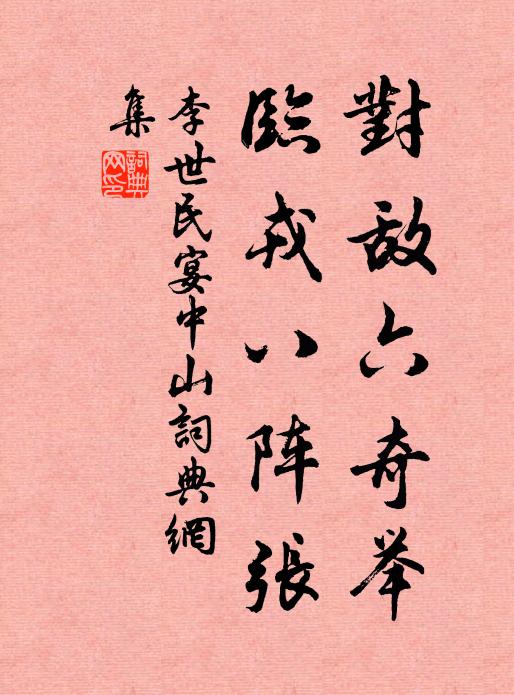 對敌六奇举
臨戎八阵張
李世民宴中山詞典網
集
詞典
网印